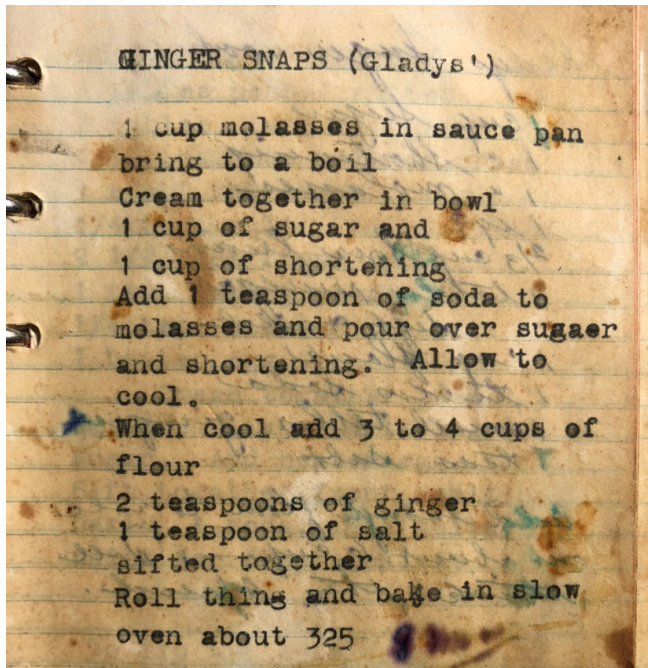 GINGER SNAPS (Gladys')
1 cup molasses in sauce pan
bring to a boil
Cream together in bowl
1 cup of sugar and
1 cup of shortening
Add 1 teaspoon of soda to
molasses and pour over sugaer
and shortening. Allow to
cool.
When cool add 3 to 4 cups of
flour
2 teaspoons of ginger
1 teaspoon of salt
sifted together
Roll thing and bake in slow
oven about 325